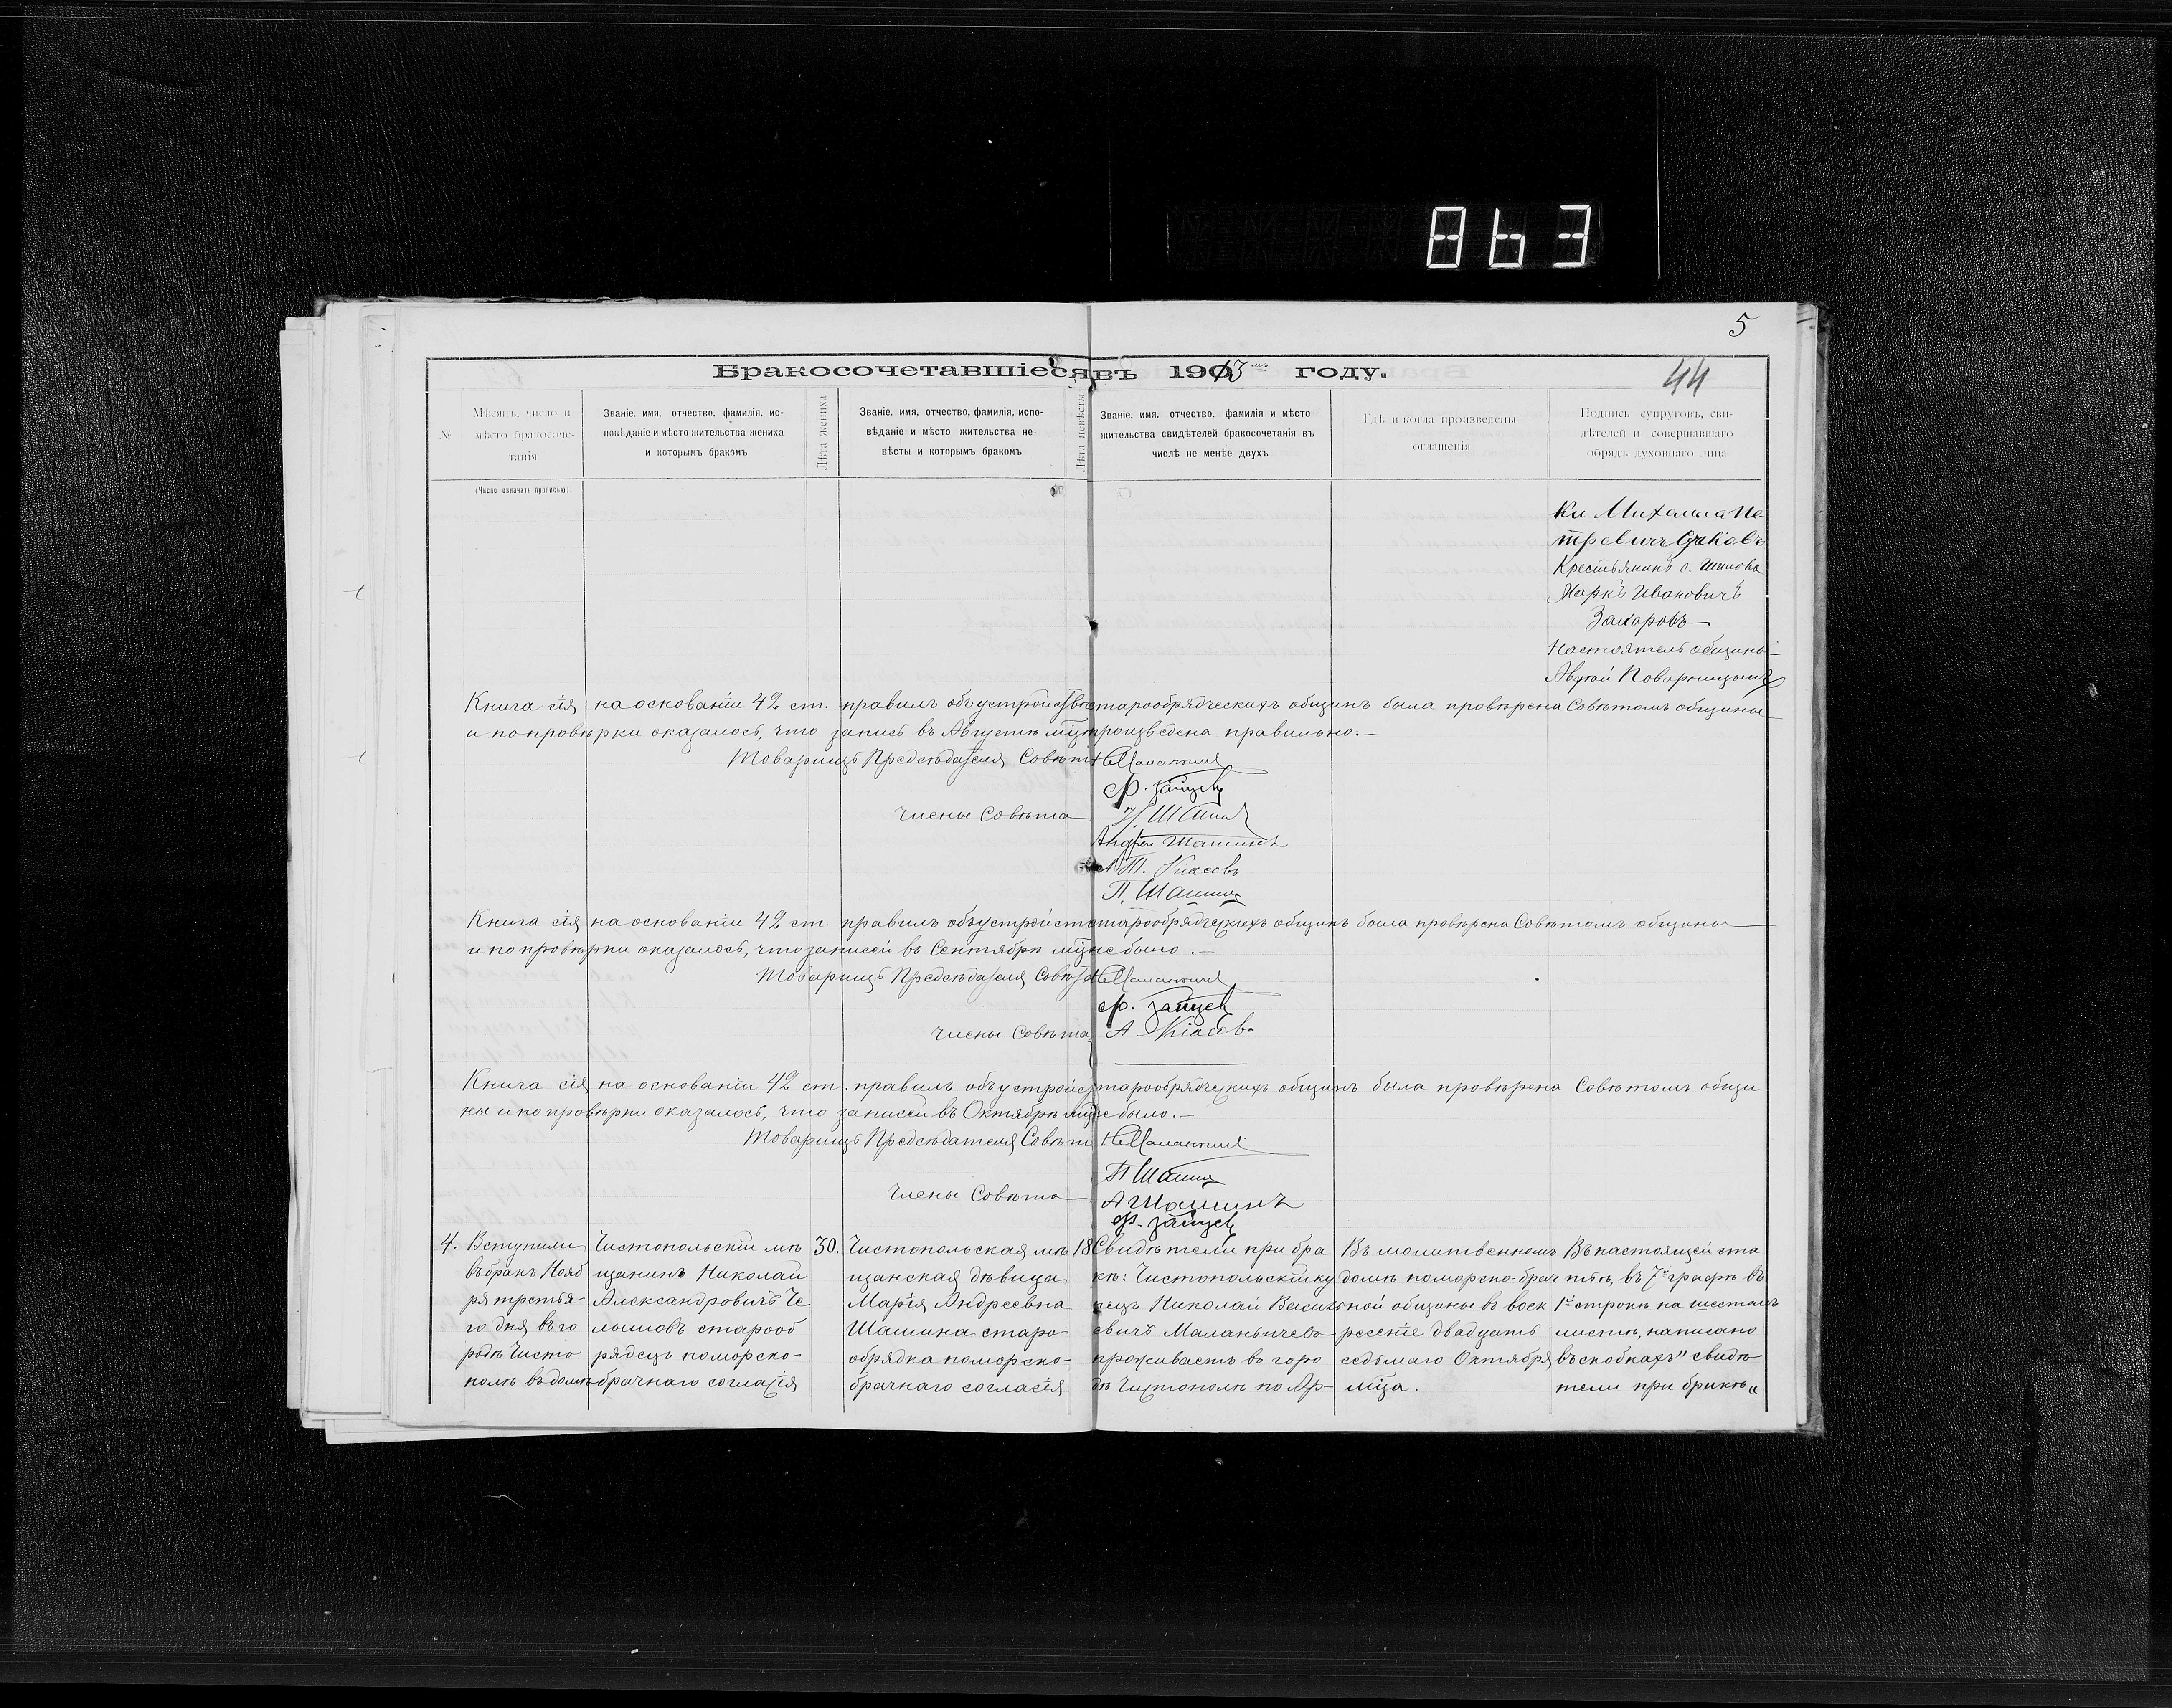 863
5
44
Бракосочетавшіеся въ 1913мъ году.
№
Мѣсяцъ, число и мѣсто бракосочетанія
(Число означать прописью)
Званіе, имя, отчество, фамилія, исповѣданіе и мѣсто жительства жениха и которымъ бракомъ
Лѣта жениха
Званіе, имя, отчество, фамилія, исповѣданіе и мѣсто жительства невѣсты и которымъ бракомъ
Лѣта невѣсты
Званіе, имя, отчество, фамилія и мѣсто жительства свидѣтелей бракосочетанія въ числѣ не менѣе двухъ
Гдѣ и когда произведены оглашенія
Подпись супруговъ, свидѣтелей и совершавшаго обрядъ духовнаго лица
ки Михаила Пе
тровичъ
Крестьянинъ с.
Маркъ Ивановичъ
Захаровъ
Настоятель общины
Поварницынъ
Книга сія на основаніи 42 ст. правилъ объ устройствѣ старообрядческихъ общинъ была провѣрена Совѣтомъ общины
и по провѣрки оказалось, что запись въ Августѣ мцѣ произведена правильно.—
Товарищъ Предсѣдателя Совѣта
Ф. Зайцевъ
Члены Совѣта
Шашин
Андрей Шашинъ
Кіасовъ
П. Шашинъ
Книга сія на основаніи 42 ст. правилъ объ устройств старообрядческихъ общинъ была провѣрена Совѣтомъ общины
и по провѣрки оказалось, что записей въ Сентябрѣ мцѣ не было.—
Товарищъ Предсѣдателя Совѣта
Ф. Зайцевъ
Члены Совѣта А Кіасовъ
Книга сія на основаніи 42 ст. правилъ объ устройств старообрядческихъ общинъ была провѣрена Совѣтомъ общи
ны и по провѣрки оказалось, что записей въ Октябрѣ мцѣ не было.—
Товарищъ Предсѣдателя Совѣта
П Шашинъ
Члены Совѣта
А Шашинъ
Ф. Зайцевъ
4.
Вступили
въ бракъ Нояб
ря третья-
го дня въ го
родѣ Чисто
полѣ въ домѣ
Чистопольскій мѣ
щанинъ Николай
Александровичъ Че
лышовъ старооб
рядецъ поморско-
брачнаго согласія
30.
Чистопольская мѣ
щанская дѣвица
Марія Андреевна
Шашина старо
обрядка поморско-
брачнаго согласія
18
Свидѣтели при бра
кѣ: Чистопольскій ку
пецъ Николай Василь
евичъ Маланьичевъ
проживаетъ въ горо
дѣ Чистополѣ по Ар-
Въ молитвенномъ
домѣ поморско-брач
ной общины въ воск
ресеніе двадцать
седьмаго Октября
мца.
Въ настоящей ста
тьѣ, въ 7й графѣ въ
1й строкѣ на шестомъ
листѣ, написано
въ скобкахъ "свидѣ
тели при бракѣ"